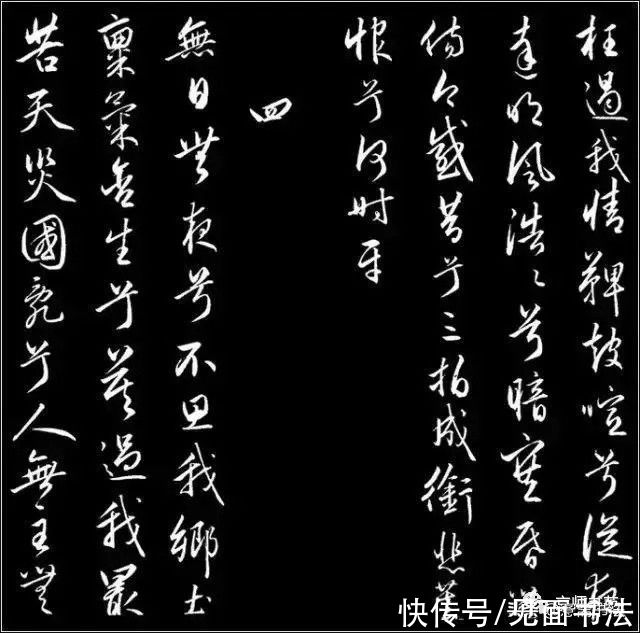 枉遏我情鞞鼓喧兮從夜
達明風浩〻兮暗塞昏
傷今感昔兮三拍成銜悲蓄
恨兮何時平
四
無日無夜兮不思我鄉土
稟氣含生兮莫過我最
苦天災國亂兮人無主
快传号/見面书法